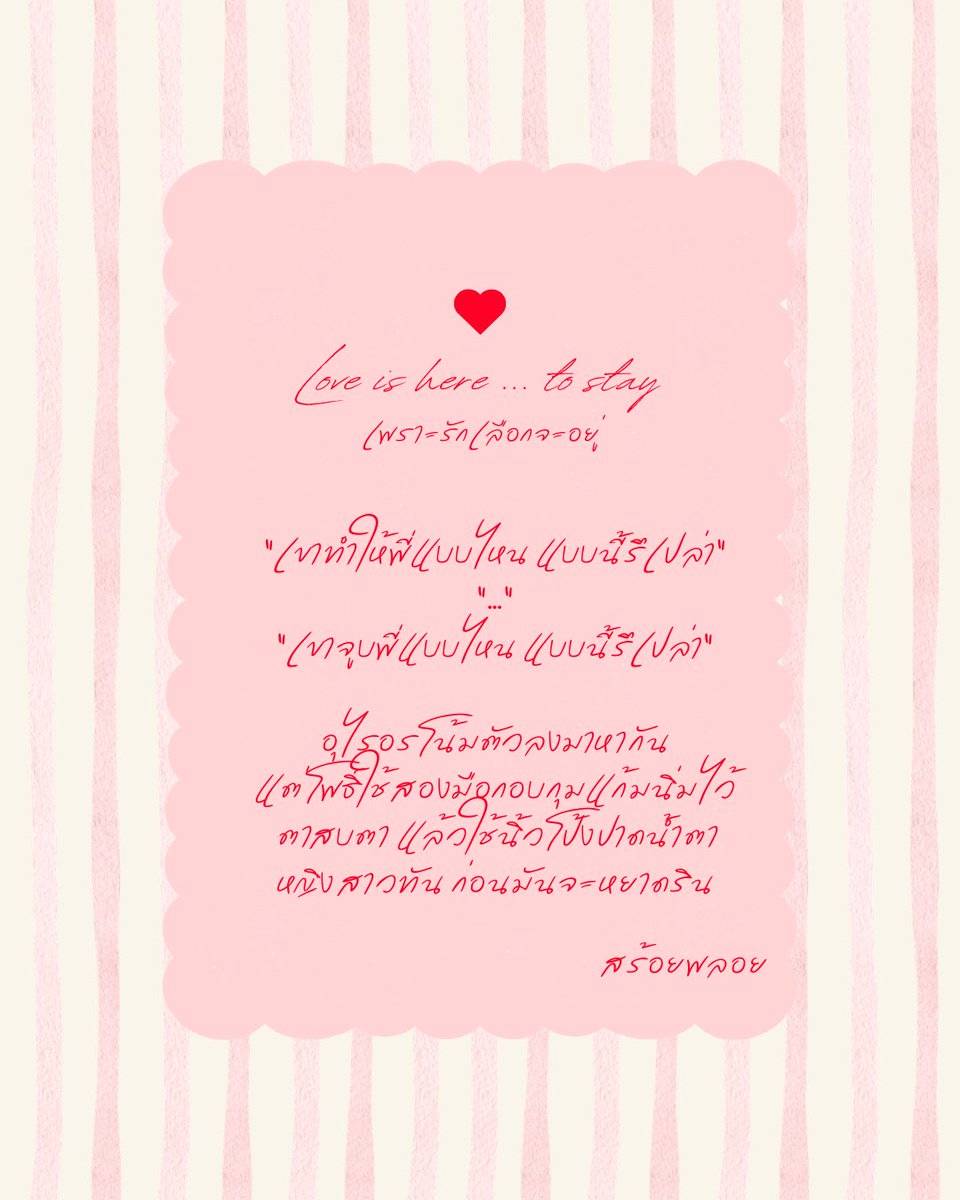 Love is here ... to stay
เพราะรักเลือกจะอยู่
"เขาทำให้พี่แบบไหน แบบนี้รึเปล่า"
"..."
"เขาจูบพี่แบบไหน แบบนี้รึเปล่า"
อุไรอรโน้มตัวลงมาหากัน
แต่โพธิ์ใช้สองมือกอบกุมแก้มนิ่มไว้
ตาสบตา แล้วใช้นิ้วโป้งปาดน้ำตา
หญิงสาวทัน ก่อนมันจะหยาดริน
สร้อยพลอย